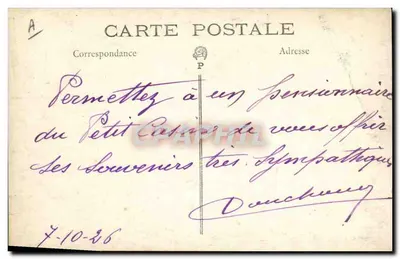 A
CARTE POSTALE
Correspondance
Adresse
P
Permettez à un pensionnaire
du Petit Casino de vous offrir
ses souvenirs très sympathiques
7-10-26